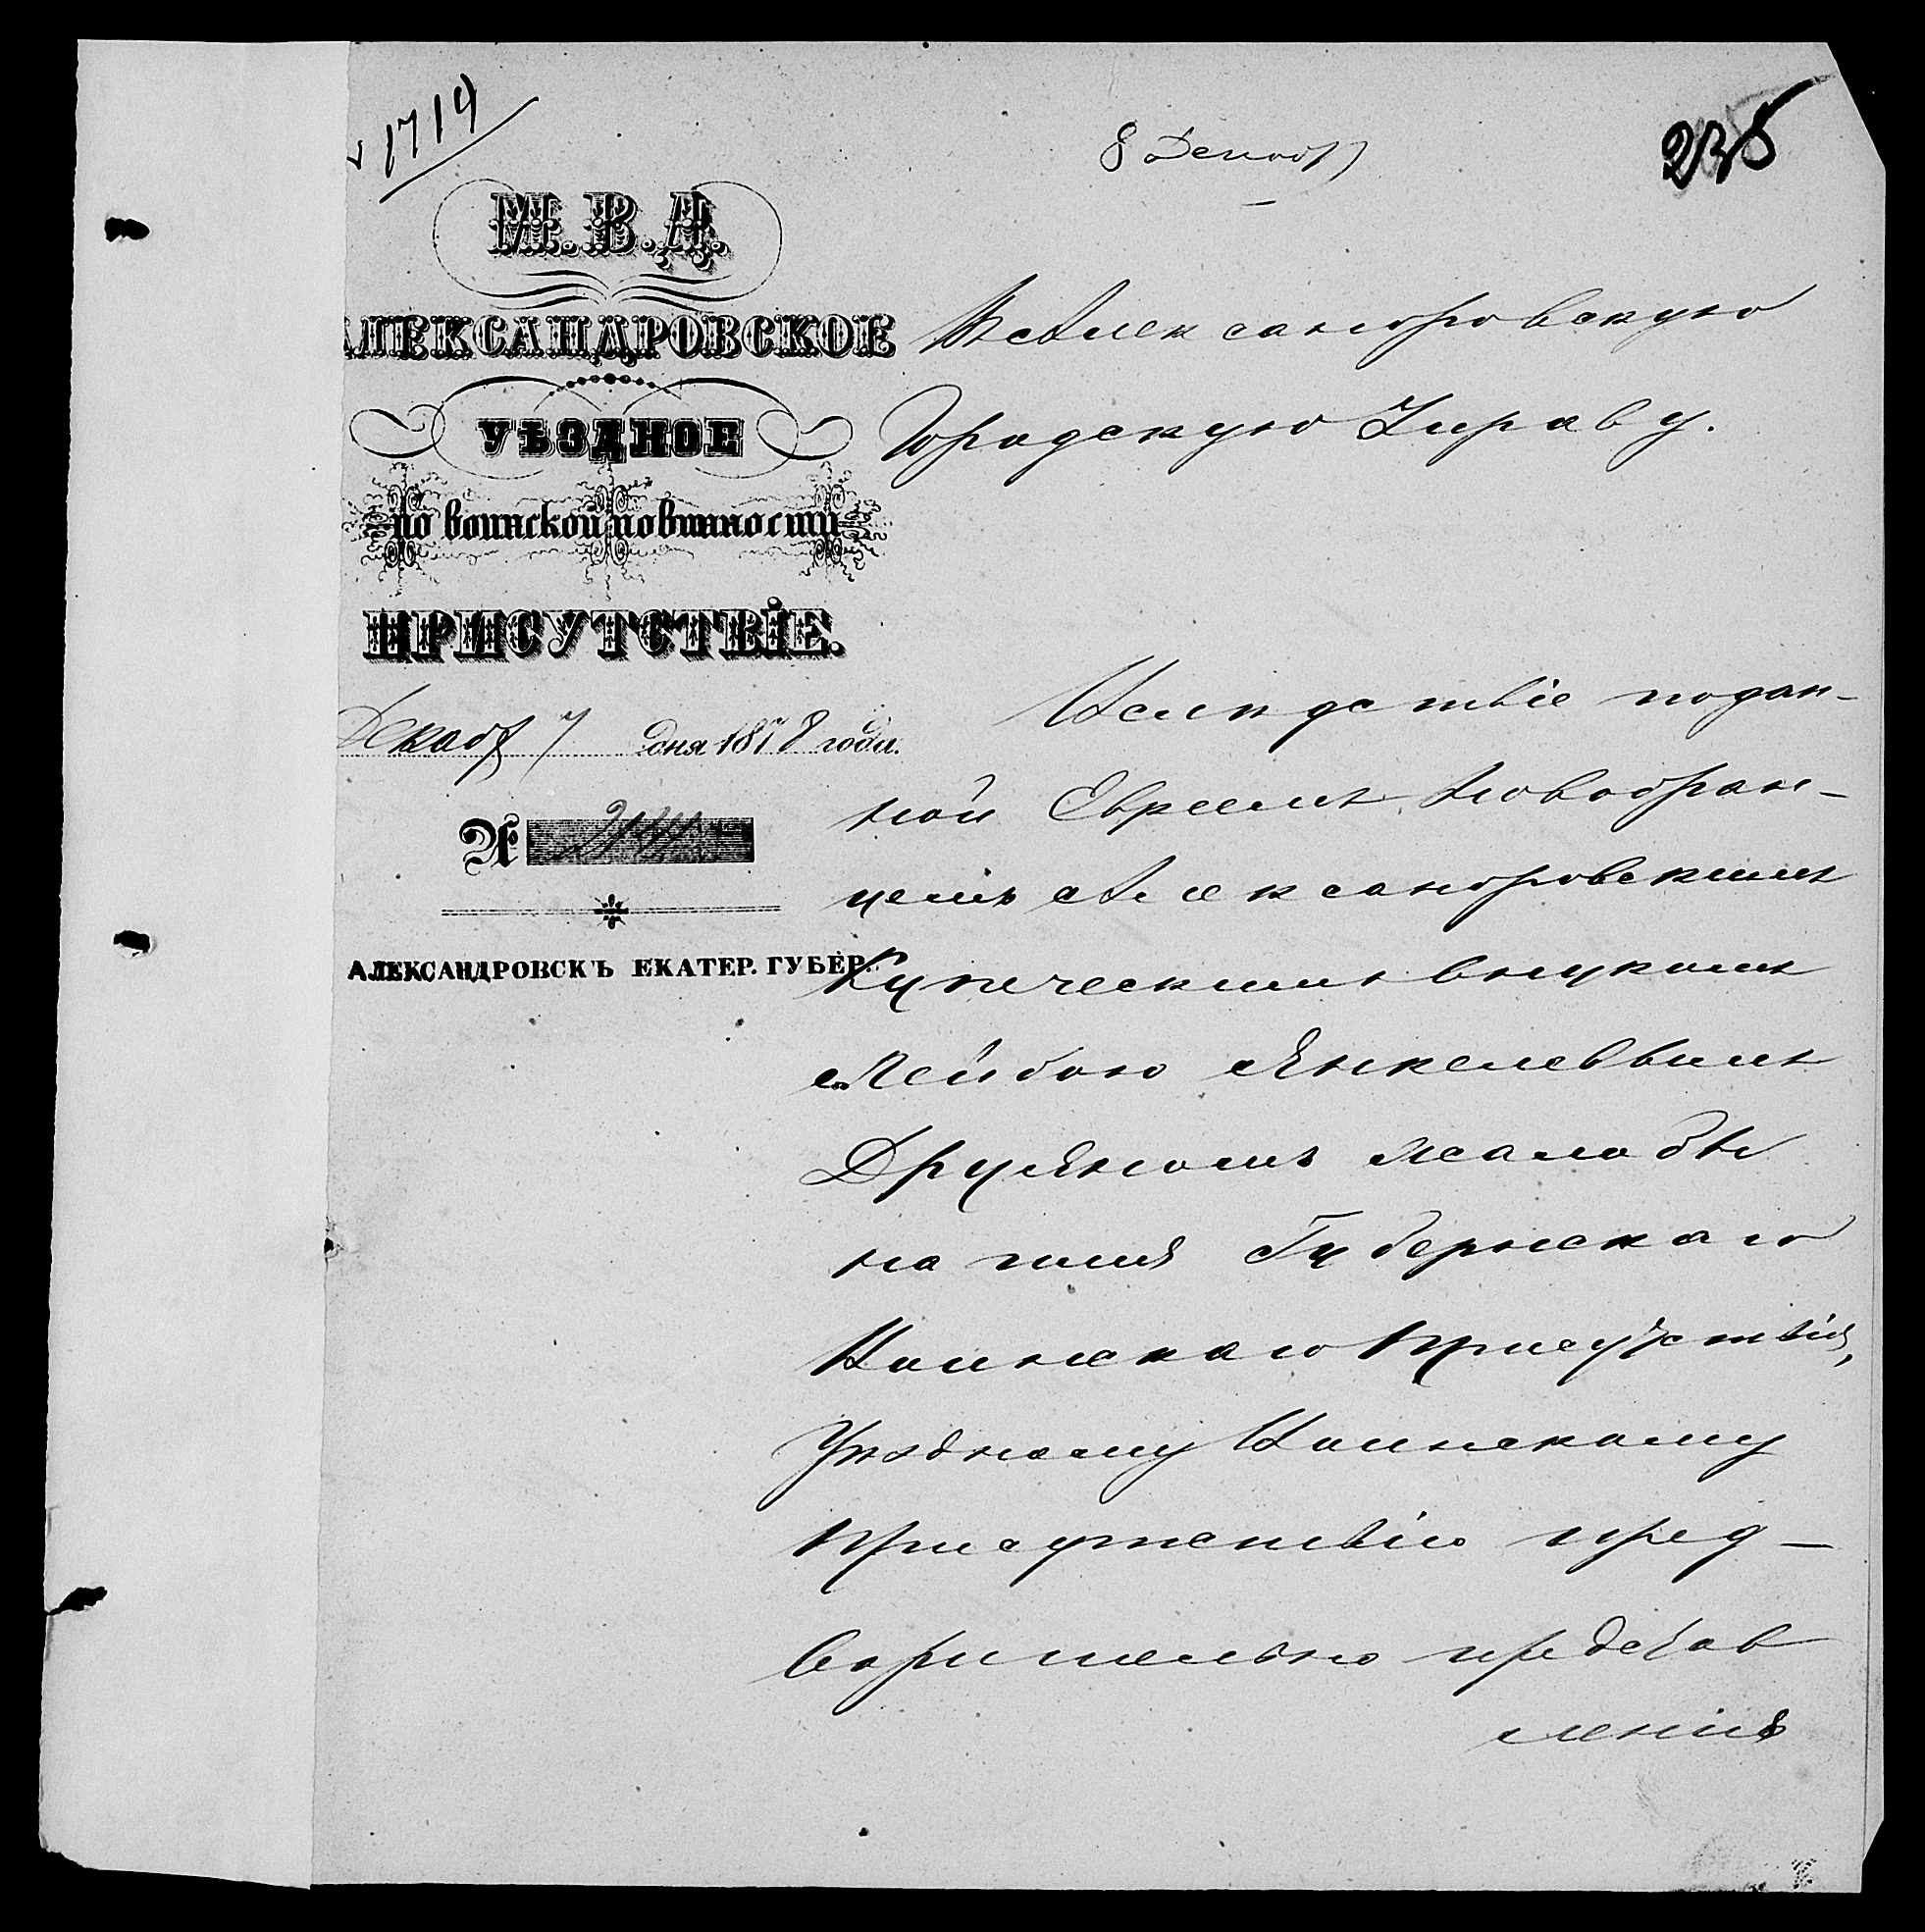 1719
8 Декабр
235
М. В. Д.
АЛЕКСАНДРОВСКОЕ
УѢЗДНОЕ
по воинской повинности
ПРИСУТСТВІЕ.
Декабр 7 дня 1878 года.
№
АЛЕКСАНДРОВСКЪ ЕКАТЕР. ГУБЕР.
Въ Александровскую
Городскую Управу.
Вслѣдствіе подан-
ной Евреемъ Новобран-
цемъ Александровскимъ
Купеческимъ внукомъ
Лейбою Янкелевымъ
Друяномъ жалобы
на имя Губернскаго
Воинскаго Присутствія,
Уѣздному Воинскому
Присутствію пред-
варительно представ
ленія